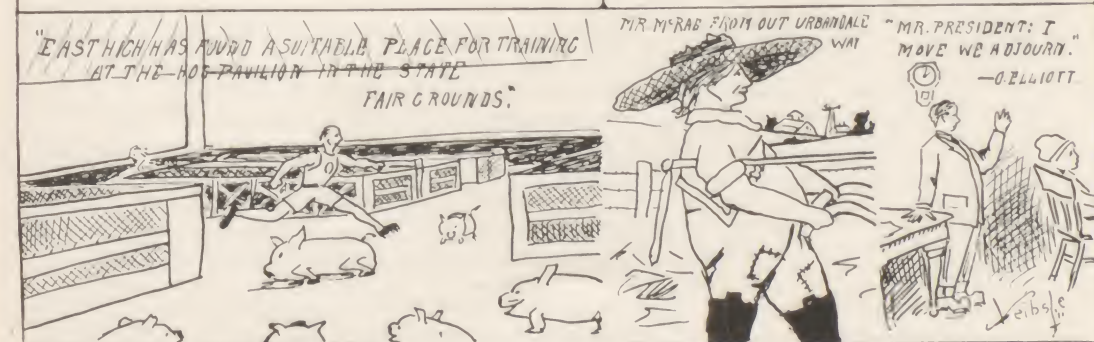 "EAST HIGH HAS FOUND A SUITABLE PLACE FOR TRAINING
AT THE HOG PAVILION IN THE STATE
FAIR GROUNDS."
MR. McRAE FROM OUT URBANDALE
WAY
"MR. PRESIDENT: I
MOVE WE ADJOURN."
—O. ELLIOTT